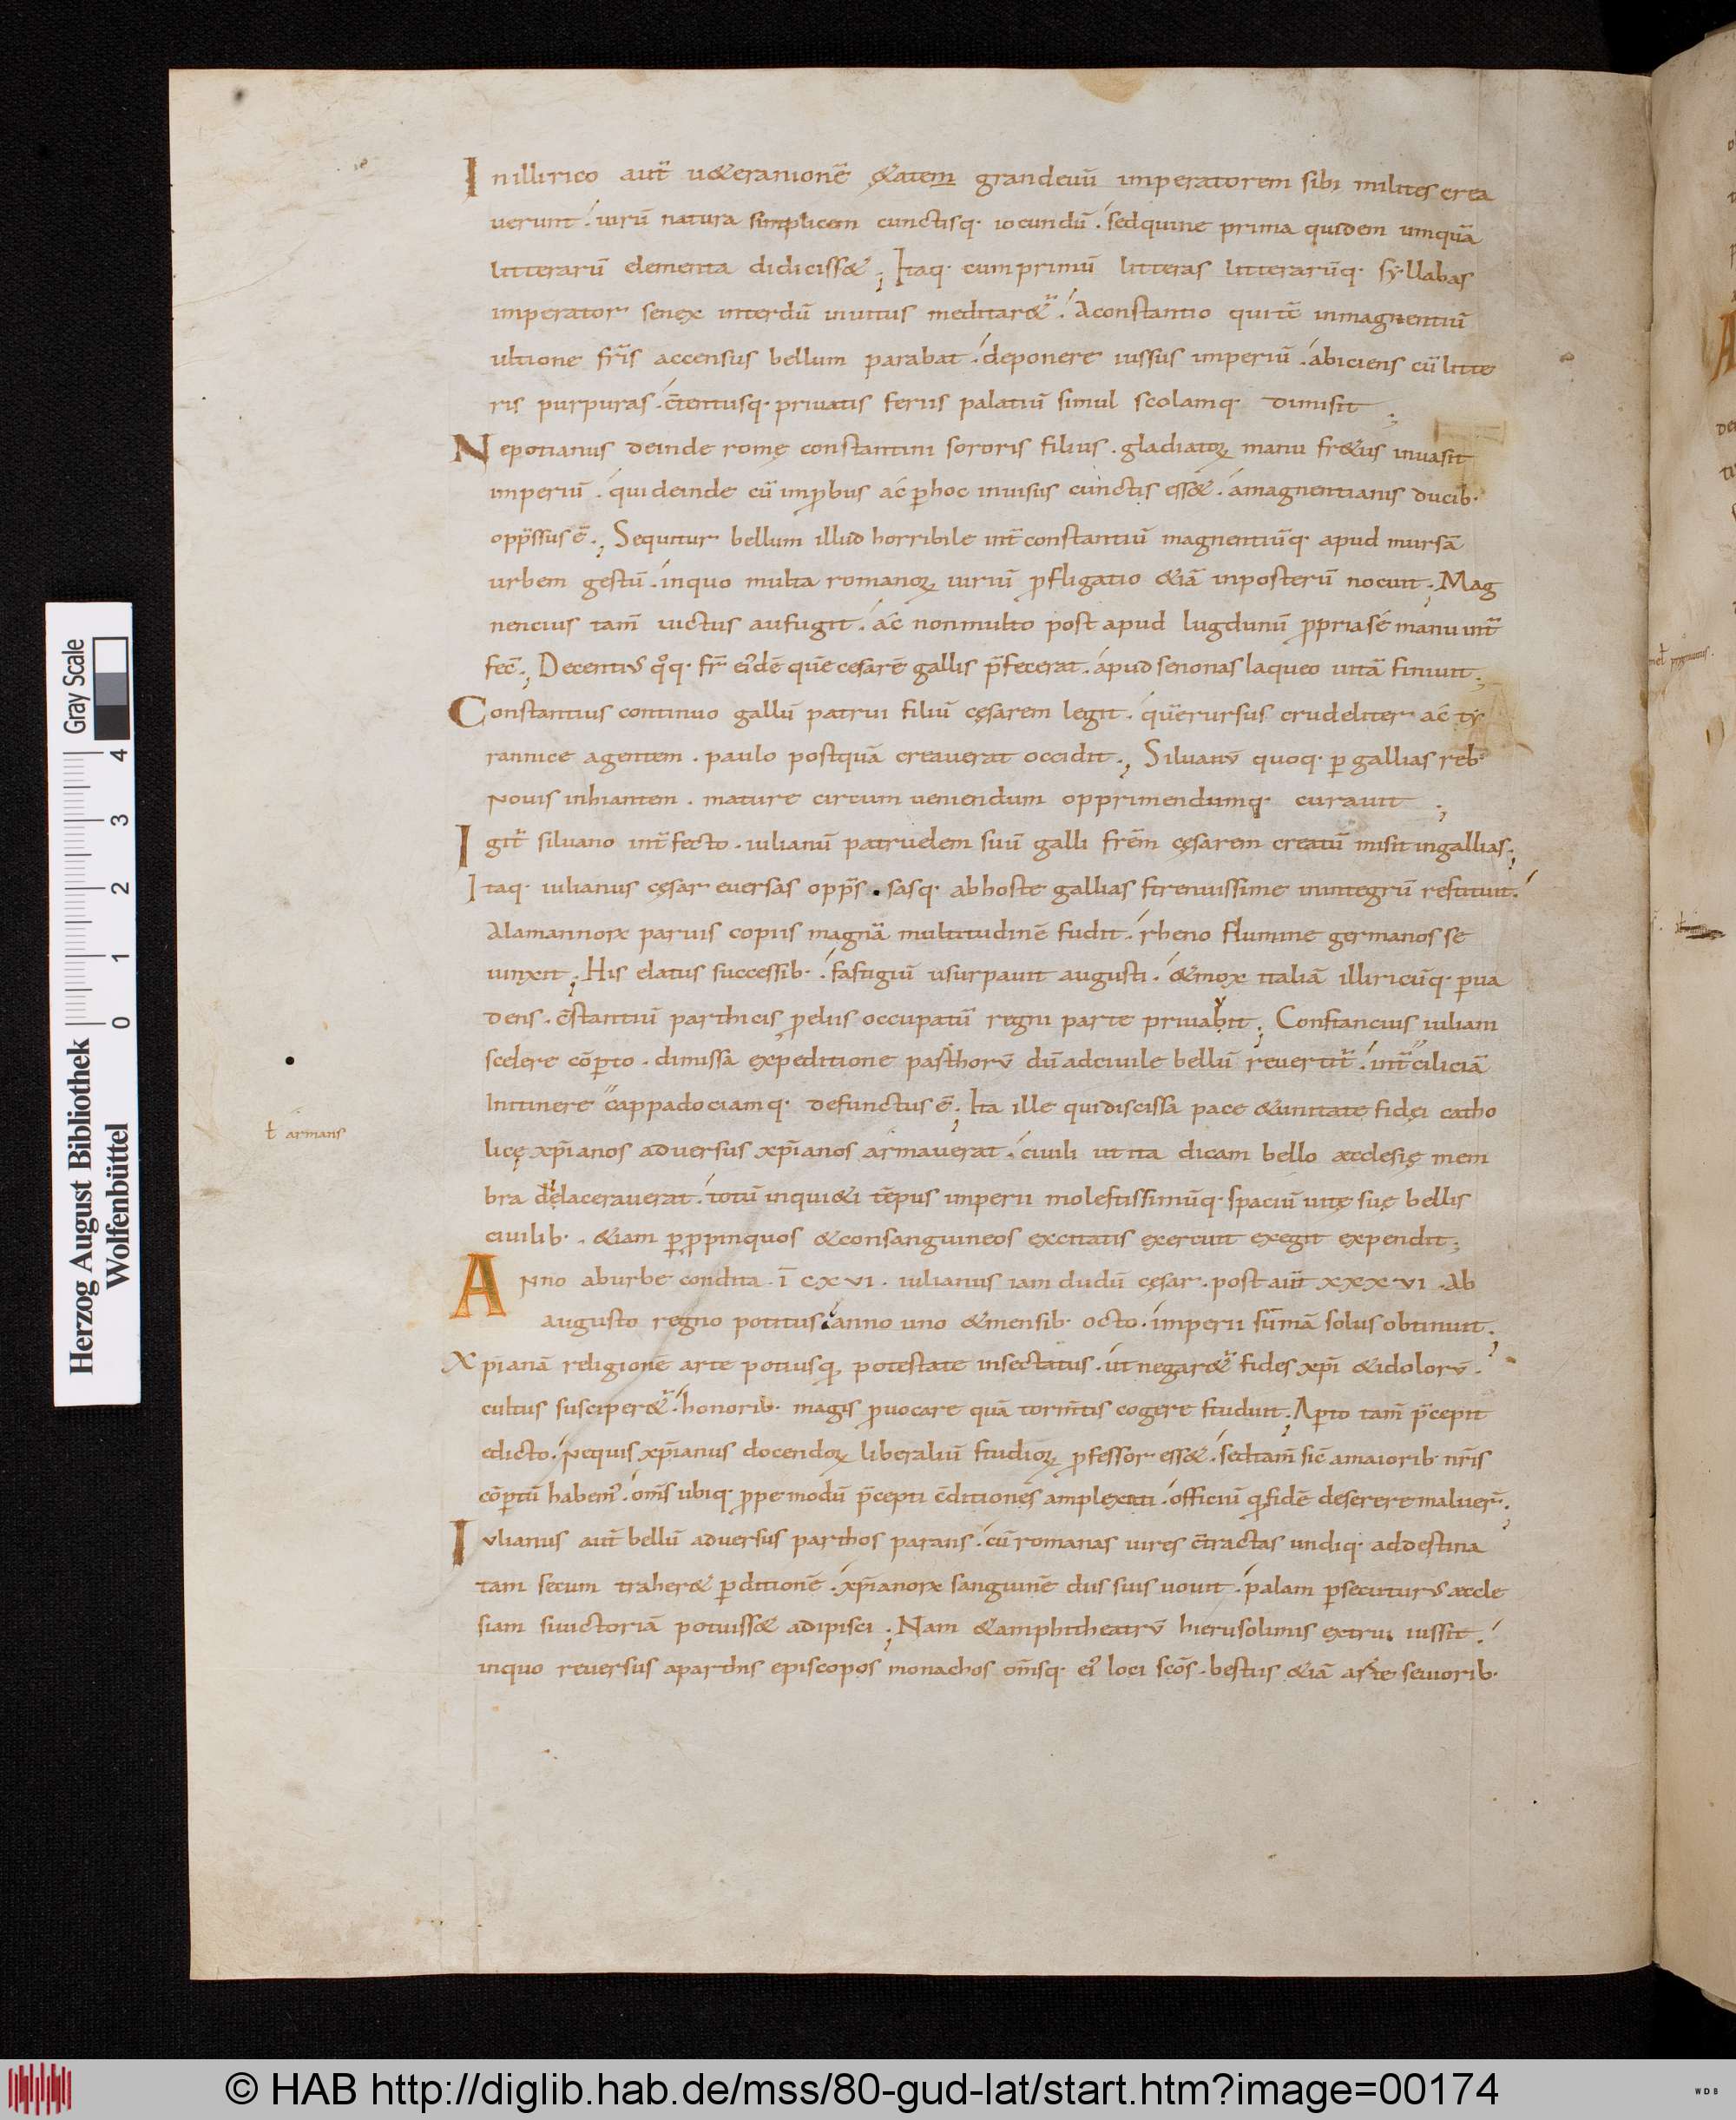 In illirico aut̄ u&eranionē &atem grandeuū imperatorem sibi milites crea
uerunt . uirū natura simplicem cunctisq· iocundū . sed qui ne prima quidem umquā
litterarū elementa didiciss& ; Itaq· cum primū litteras litterarūq· syllabas
imperator senex interdū inuitus meditar&̄ . A constantio qui tē in magnentiū
ultione fr̄is accensus bellum parabat . deponere iussus imperiū . abiciens cū litte
ris purpuras . c̄tentusq· priuatis feriis palatiū simul scolamq· dimisit ;
Nepotianus deinde romę constantini sororis filius . gladiatoꝝ manu fr&us inuasit
imperiū . qui deinde cū inꝓbus ac ꝑhoc inuisus cunctis ess& . a magnentianis ducib·
opp̄ssus ē ; Sequitur bellum illud horribile int̄ constantiū magnentiūq· apud mursā
urbem gestū . in quo multa romanoꝝ uiriū ꝓfligatio &iā in posterū nocuit ; Mag
nencius tam̄ uictus aufugit . ac non multo post apud lugdunū ꝓpria se manu int̄
fec̄ ; Decentius qͦq· fr̄ ei'dē quē cesarē gallis p̄fecerat . apud senonas laqueo uitā finiuit ;
Constantius continuo gallū patrui filiū cęsarem legit . quē rursus crudeliter ac ty
rannice agentem . paulo postquā creauerat occidit ; Siluanū quoq· ꝑ gallias reb·
nouis inhiantem . mature circum ueniendum opprimendumq· curauit ;
Igit̄ siluano int̄fecto . iulianū patruelem suū galli fr̄em cęsarem creatū misit in gallias ;
Itaq· iulianus cęsar euersas opp̄s . sasq· ab hoste gallias strenuissime in integrū restituit .
Alamannorx paruis copiis magnā multitudinē fudit . rheno flumine germanos se
iunxit ; His elatus successib· . fastigiū usurpauit augusti . &mox italiā illiricūq· ꝑua
dens . c̄stantiū parthicis ꝓeliis occupatū regni parte priuabit ; Constancius iuliani
scelere cōꝑto . dimissa expeditione pasthorū dū ad ciuile bellū reuertit̄ . int̄ ciliciā
In itinere cappadociamq· defunctus ē ; Ita ille qui discissa pace &unitate fidei catho
t̄ armans
licę xp̄ianos aduersus xp̄ianos armauerat . ciuili ut ita dicam bello ecclesię mem
bra dęlacerauerat . totū inqui&i tēpus imperii molestissimūq· spaciū uitę suę bellis
ciuilib· . &iam ꝑꝓpinquos &consanguineos excitatis exercuit exegit expendit ;
Anno ab urbe condita . ī cxvi . iulianus iam dudū cęsar . post aut̄ xxxvi . Ab
augusto regno potitus . anno uno &mensib· octo . imperii sūmā solus obtinuit ;
Xp̄ianā religionē arte potiusꝙ potestate insectatus . ut negar&̄ fides xp̄i &idolorū .
cultus susciper&̄ . honorib· magis ꝓuocare quā torm̄tis cogere studuit ; Aꝑto tam̄ p̄cepit
edicto . ne quis xp̄ianus docendoꝝ liberaliū studioꝝ ꝓfessor ess& . sed tam̄ sic̄ a maiorib· nr̄is
cōꝑtū habem' . om̄s ubiq· ꝓpe modū p̄cepti c̄ditiones amplexati . officiū ꝙ fidē deserere maluer̄ ;
Iulianus aut̄ bellū aduersus parthos parans . cū romanas uires c̄tractas undiq· ad destina
tam secum traher& ꝑditionē . xp̄ianorx sanguinē diis suis uouit . palam ꝑsecuturū eccle
siam si uictoriā potuiss& adipisci ; Nam &amphitheatrū hierusolimis extrui iussit .
in quo reuersus a parthis episcopos monachos om̄sq· ei' loci sc̄os . bestiis &iā arte seuiorib·
Herzog August Bibliothek
Wolfenbüttel
Gray Scale
0 1 2 3 4
© HAB http://diglib.hab.de/mss/80-gud-lat/start.htm?image=00174
WDB